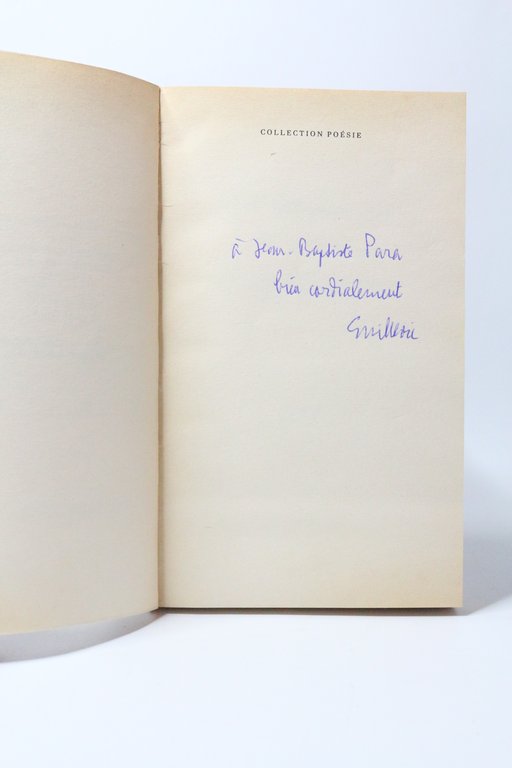 COLLECTION POÉSIE
à Jean-Baptiste Para
bien cordialement
Guillevic